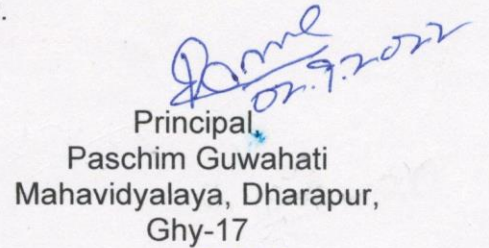 02.9.2022
Principal,
Paschim Guwahati
Mahavidyalaya, Dharapur,
Ghy-17